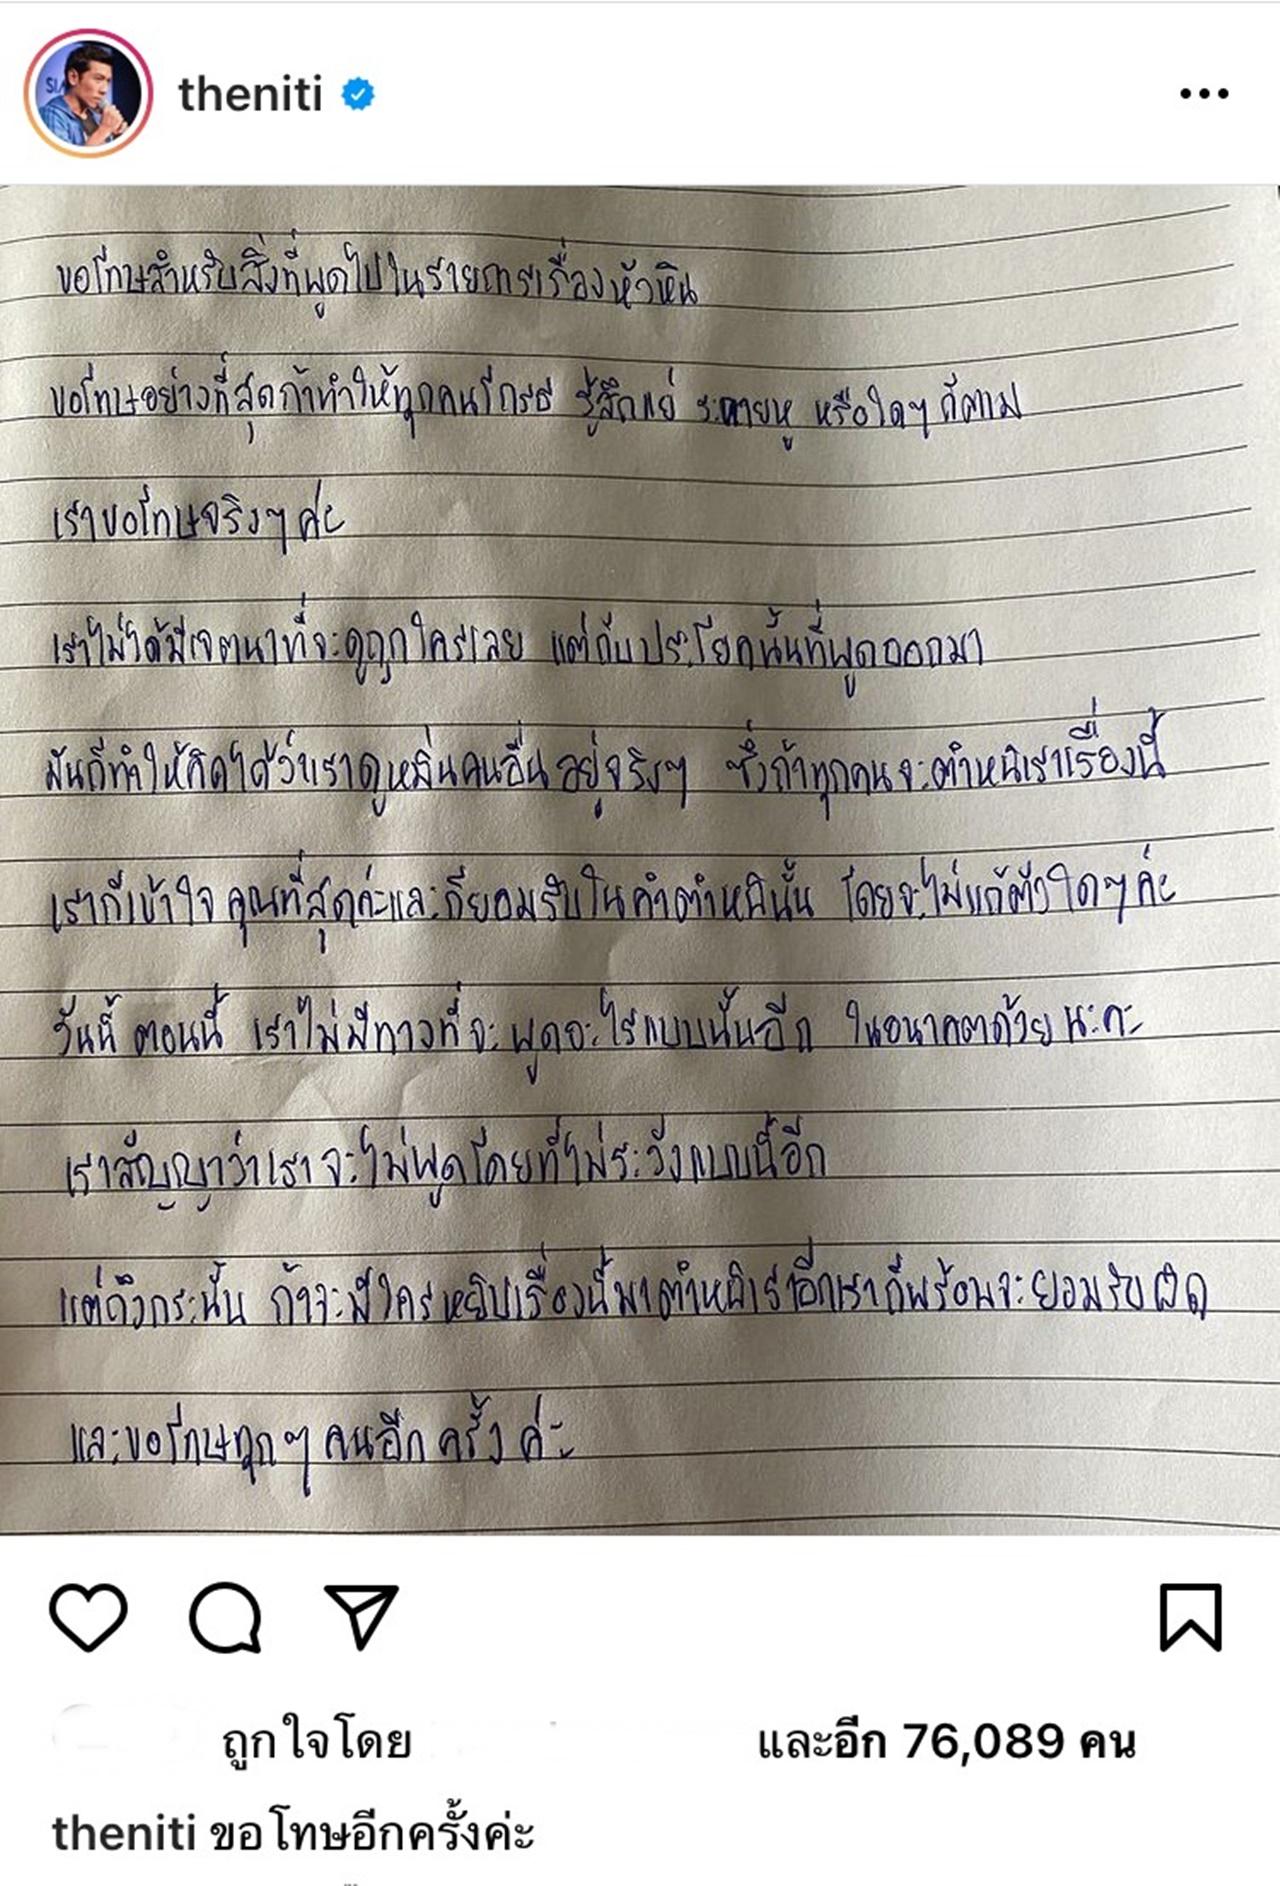 theniti
ขอโทษสำหรับสิ่งที่พูดไปในรายการเรื่องหัวหิน
ขอโทษอย่างที่สุดถ้าทำให้ทุกคนโกรธ รู้สึกแย่ ระคายหู หรือใดๆ ก็ตาม
เราขอโทษจริงๆ ค่ะ
เราไม่ได้มีเจตนาที่จะดูถูกใครเลย แต่กับประโยคนั้นที่พูดออกมา
มันก็ทำให้คิดได้ว่าเราดูหมิ่นคนอื่นอยู่จริงๆ ซึ่งถ้าทุกคนจะตำหนิเราเรื่องนี้
เราก็เข้าใจ คุณที่สุดค่ะและก็ยอมรับในคำตำหนินั้น โดยจะไม่แก้ตัวใดๆ ค่ะ
วันนี้ ตอนนี้ เราไม่มีทางที่จะ พูดอะไรแบบนั้นอีก ในอนาคตด้วย นะคะ
เราสัญญาว่าเรา จะไม่พูดโดยที่ไม่ระวังแบบนี้อีก
แต่ถึงกระนั้น ถ้าจะมีใครหยิบเรื่องนี้มาตำหนิเราอีกเราก็พร้อมจะยอมรับผิด
และขอโทษทุกๆ คนอีก ครั้ง ค่ะ
ถูกใจโดย และอีก 76,089 คน
theniti ขอโทษอีกครั้งค่ะ